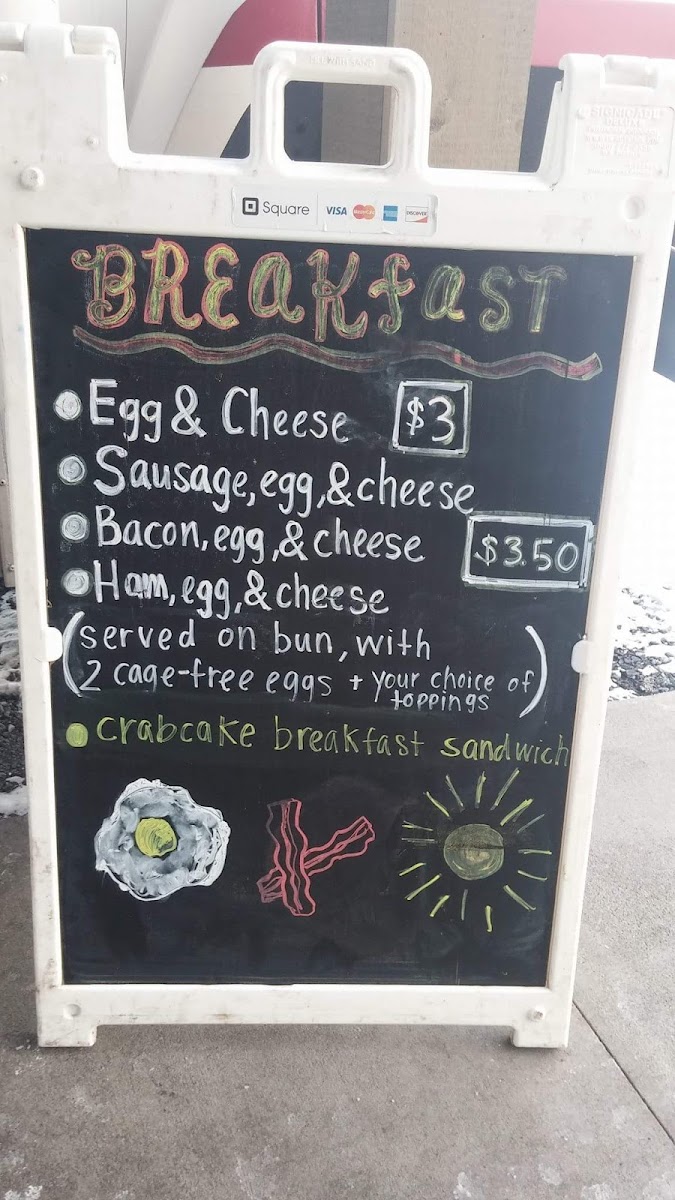 Square VISA MasterCard DISCOVER
SIGNICADE
BREAKfAST
Egg & Cheese $3
Sausage, egg, & cheese
Bacon, egg, & cheese $3.50
Ham, egg, & cheese
(served on bun, with
2 cage-free eggs + your choice of
toppings)
crabcake breakfast sandwich